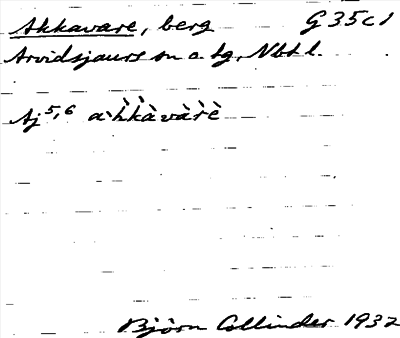 Akkavare, berg G 35c1
Arvidsjaurs sn o. tg, Nbt l.
Aj 5,6 a`h̀k̀àvàr̀è
Björn Collinder 1932